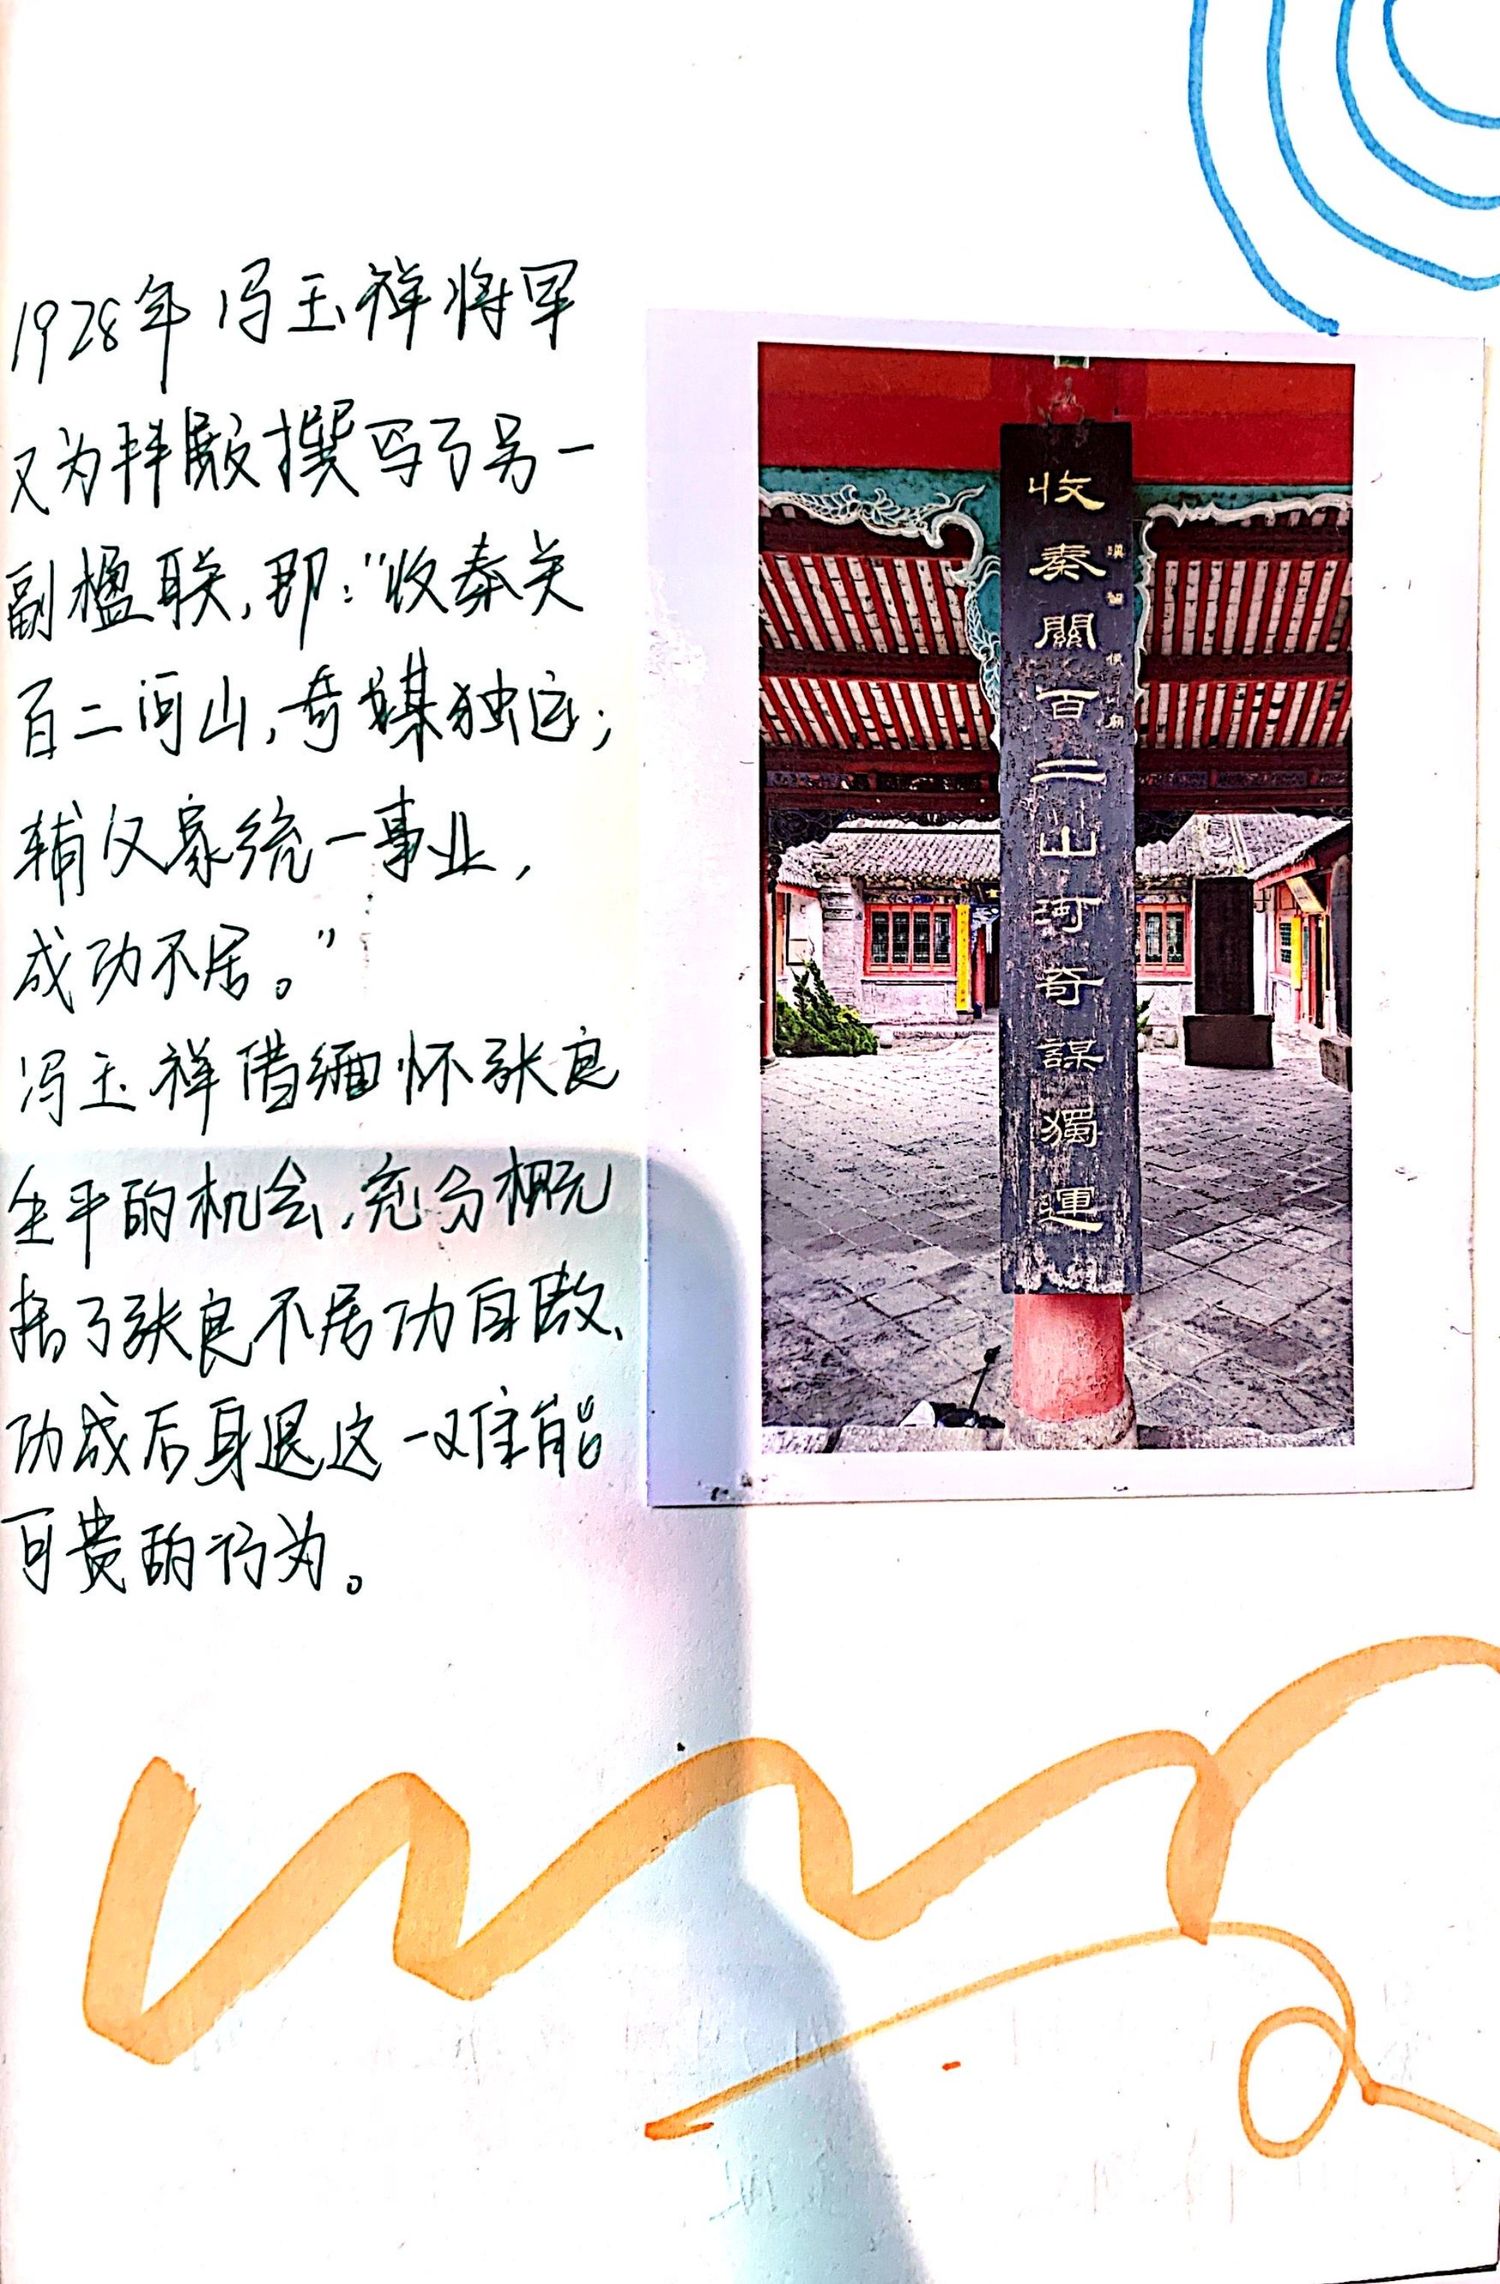 1928年冯玉祥将军
又为拜殿撰写了另一
副楹联，即："收秦关
百二河山，奇谋独运；
辅汉家统一事业，
成功不居。"
冯玉祥借缅怀张良
生平的机会，充分概
括了张良不居功自傲、
功成后身退这一难能
可贵的行为。
收秦關百二山河奇謀獨運
漢留侯廟